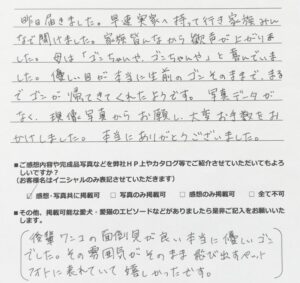 昨日届きました。早速実家へ持って行き家族みん
なで開けました。家族皆んなから歓声が上がりま
した。母は「ゴンちゃんや、ゴンちゃんや」と喜んでいま
した。優しい目が本当に生前のゴンそのままで、まる
でゴンが帰ってきてくれたようです。写真データが
なく、現像写真からお願し、大変お手数をお
かけしました。本当にありがとうございました。
■ご感想や完成品写真などを弊社HP上やカタログ等でご紹介させていただいてもよろ
しいですか?
(お客様名はイニシャルのみ表記させていただきます)
☑感想・写真共に掲載可 □写真のみ掲載可 □感想のみ掲載可 □全て不可
■その他、掲載可能な愛犬・愛猫のエピソードなどがありましたら是非ご記入をお願いいた
します。
後輩ワンコの面倒見が良い本当に優しいゴン
でした。その雰囲気がそのまま飛び出すペット
フォトに表れていて嬉しかったです。